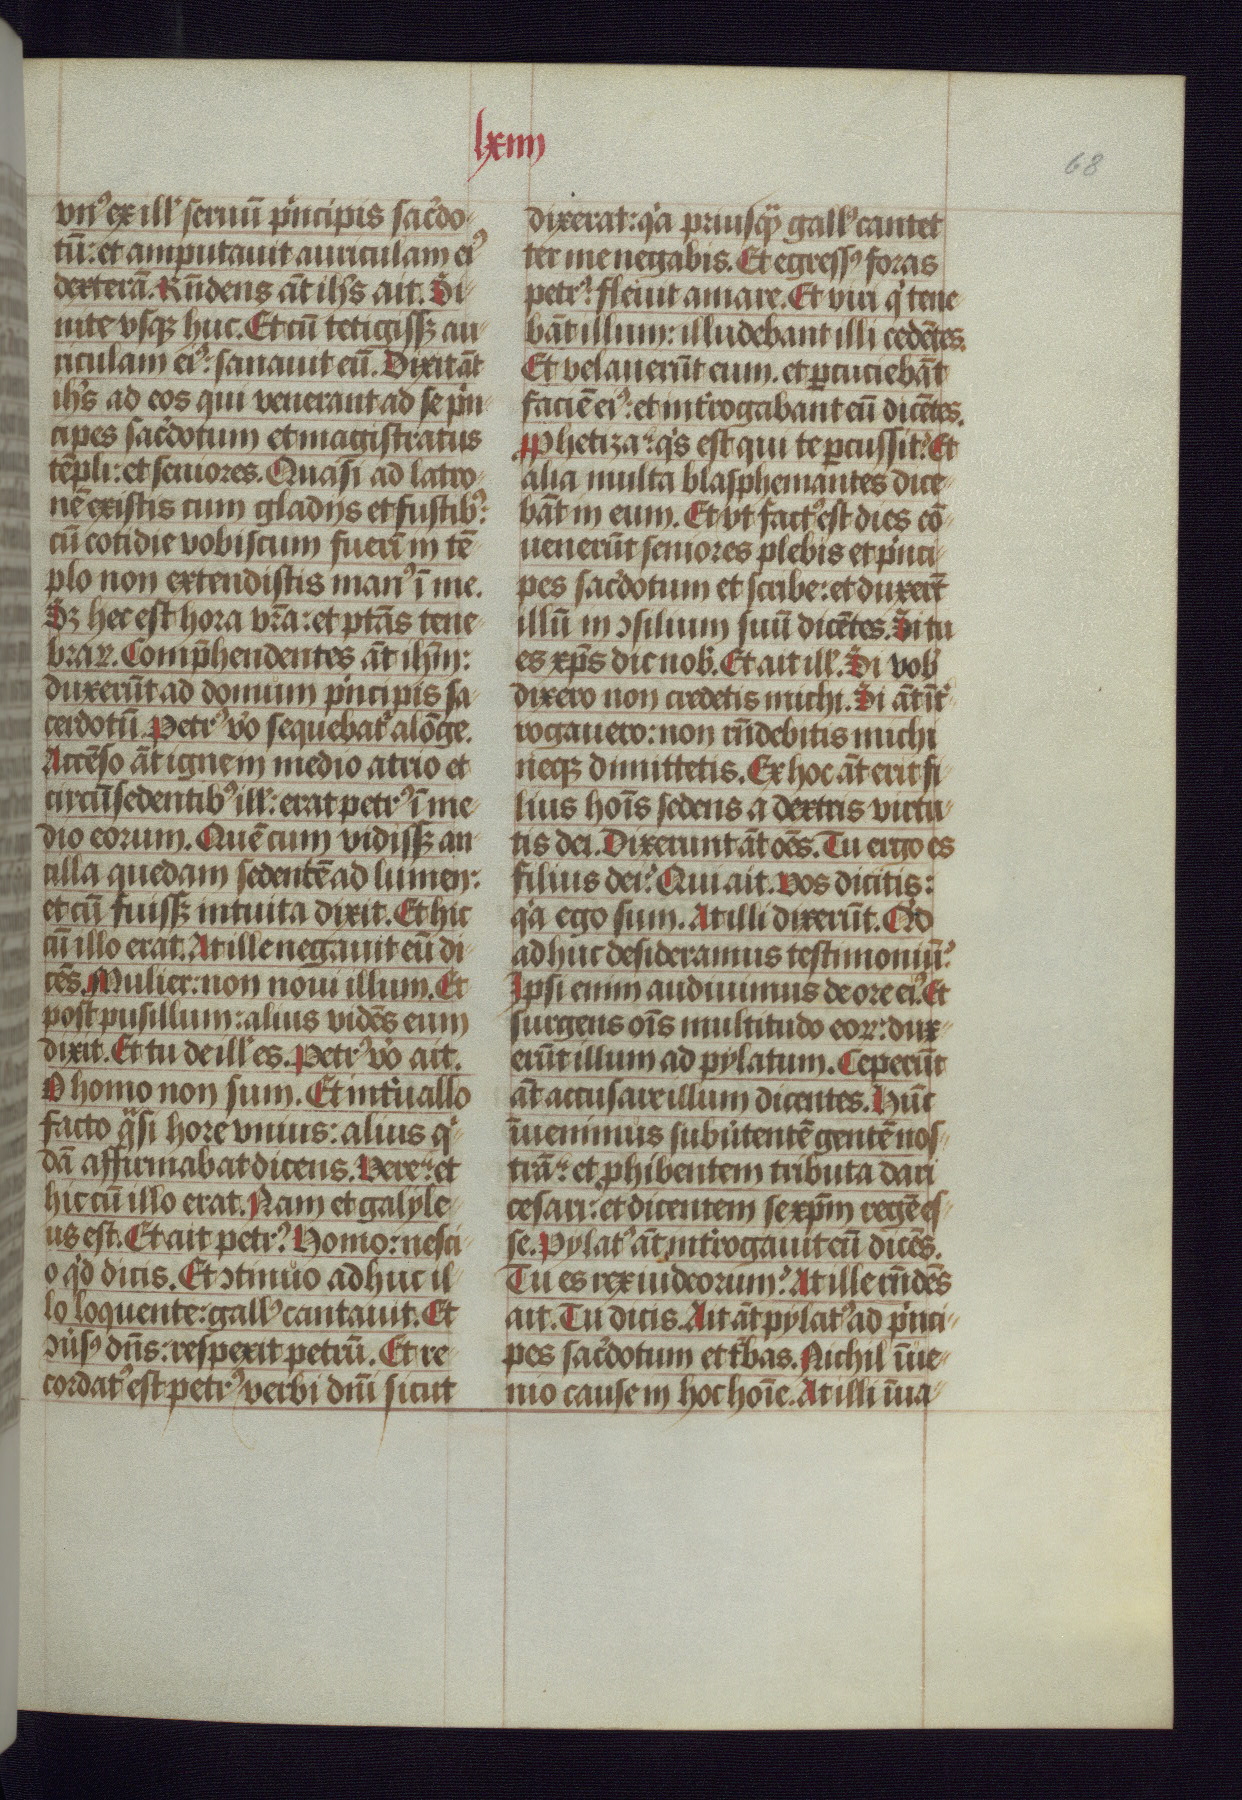 lxiiij
68
vnꝰ ex ill' seruū p̄ncipis sac̄do-
tū: et amputauit auriculam eiꝰ
dexterā. Rn̄dens āt ih̄s ait. Si-
nite vsqꝫ huc. Et cū tetigissꝫ au-
riculam eiꝰ: sanauit eū. Dixit āt
ih̄s ad eos qui venerant ad se p̄n-
cipes sac̄dotum et magistratus
tēpli: et seniores. Quasi ad latro-
nē existis cum gladijs et fustibꝰ:
cū cotidie vobiscum fuerī in tē-
plo non extendistis manꝰ ī me.
Sꝫ hec est hora vr̄a: et ptās tene-
braꝝ. Comp̄hendentes āt ih̄m:
duxerūt ad domum p̄ncipis sa-
cerdotū. Petrꝰ v̄o sequebat' alōge.
Accēso āt igne in medio atrio et
circūsedentibꝰ ill': erat petrꝰ ī me-
dio eorum. Quē cum vidissꝫ an-
cilla quedam sedentē ad lumen:
et cū fuissꝫ intuita dixit. Et hic
cū illo erat. At ille negauit eū di-
cēs. Mulier: non noui illum. Et
post pusillum: alius vidēs eum
dixit. Et tu de ill' es. Petrꝰ v̄o ait.
O homo non sum. Et int'uallo
facto q̄si hore vnius: alius q'-
dā affirmabat dicens. Vere: et
hic cū illo erat. Nam et galyle-
us est. Et ait petrꝰ. Homo: nesci-
o q'd dicis. Et ꝯtinuo adhuc il-
lo loquente: gallꝰ cantauit. Et
ꝯu'sꝰ dn̄s: respexit petrū. Et re-
cordatꝰ est petrꝰ verbi dn̄i sicut
dixerat: q'a priusqꝫ gallꝰ cantet
ter me negabis. Et egressꝰ foras
petrꝰ: fleuit amare. Et viri q' tene-
bāt illum: illudebant illi cedētes.
Et velauerūt eum. et ꝑcuciebāt
faciē eiꝰ: et int'rogabant eū dicētes.
Ꝓphetiza: q's est qui te ꝑcussit? Et
alia multa blasphemantes dice-
bāt in eum. Et vt factꝰ est dies cō-
uenerūt seniores plebis et p'nci-
pes sac̄dotum et scribe: et duxer̄t
illū in ꝯsilium suū dicētes. Si tu
es xp̄s dic nob'. Et ait ill'. Si vob'
dixero non credetis michi. Si āt īt'-
rogauero: non rn̄debitis michi
neqꝫ dimittetis. Ex hoc āt erit fi-
lius hoīs sedens a dextris virtu-
tis dei. Dixerunt āt oēs. Tu ergo es
filius dei? Qui ait. Vos dicitis:
q'a ego sum. At illi dixerūt. Q'd
adhuc desideramus testimoniū?
Ipsi enim audiuimus de ore eiꝰ. Et
surgens oīs multitudo eoꝝ: dux-
erūt illum ad pylatum. Ceperūt
āt accusare illum dicentes. Hūc
īuenimus subu'tentē gentē nos-
trā: et ꝓhibentem tributa dari
cesari: et dicentem se xp̄m regē es-
se. Pylatꝰ āt int'rogauit eū dicēs.
Tu es rex iudeorum? At ille rn̄dēs
ait. Tu dicis. Ait āt pylatꝰ ad p'nci-
pes sac̄dotum et t'bas. Nichil īue-
nio cause in hoc hoīe. At illi īua-